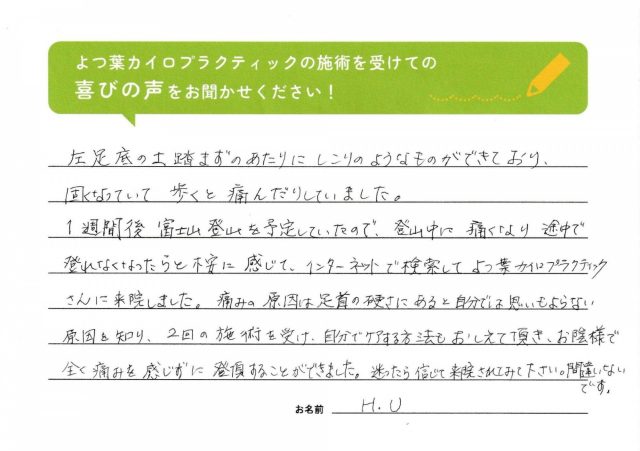 よつ葉カイロプラクティックの施術を受けての
喜びの声をお聞かせください！
左足底の土踏まずのあたりに しこりのようなものができており、
固くなっていて 歩くと 痛んだりしていました。
1週間後 富士山 登山を予定していたので、登山中に 痛くなり 途中で
登れなくなったらと不安に 感じて、インターネットで検索して よつ葉カイロプラクティック
さんに来院しました。痛みの原因は足首の硬さにあると自分では思いもよらない
原因を知り、2回の施術を受け、自分でケアする方法もおしえて頂き、お陰様で
全く痛みを感じずに 登頂することができました。迷ったら信じて来院されてみて下さい。間違いない
です。
お名前 H.U